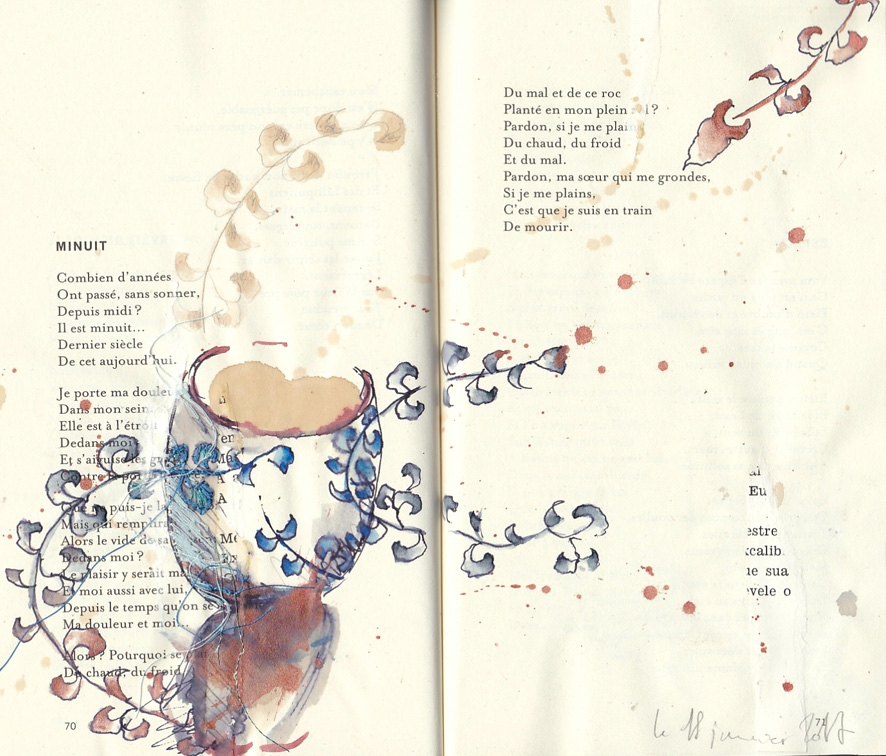 MINUIT
Combien d'années
Ont passé, sans sonner,
Depuis midi ?
Il est minuit...
Dernier siècle
De cet aujourd'hui.
Je porte ma douleu
Dans mon sein
Elle est à l'étroi
Dedans moi
Et s'aiguise les
Contre la
puis-je la
Mais qui remplira
Alors le vide de sa
Dedans moi ?
Le plaisir y serait ma
Et moi aussi avec lui,
Depuis le temps qu'on se
Ma douleur et moi...
Alors ? Pourquoi se
Du chaud, du froid
70
Du mal et de ce roc
Planté en mon plein
Pardon, si je me plain
Du chaud, du froid
Et du mal.
Pardon, ma sœur qui me grondes,
Si je me plains,
C'est que je suis en train
De mourir.
Eu
estre
xcalib
ue sua
evele o
le 18 janvier
71